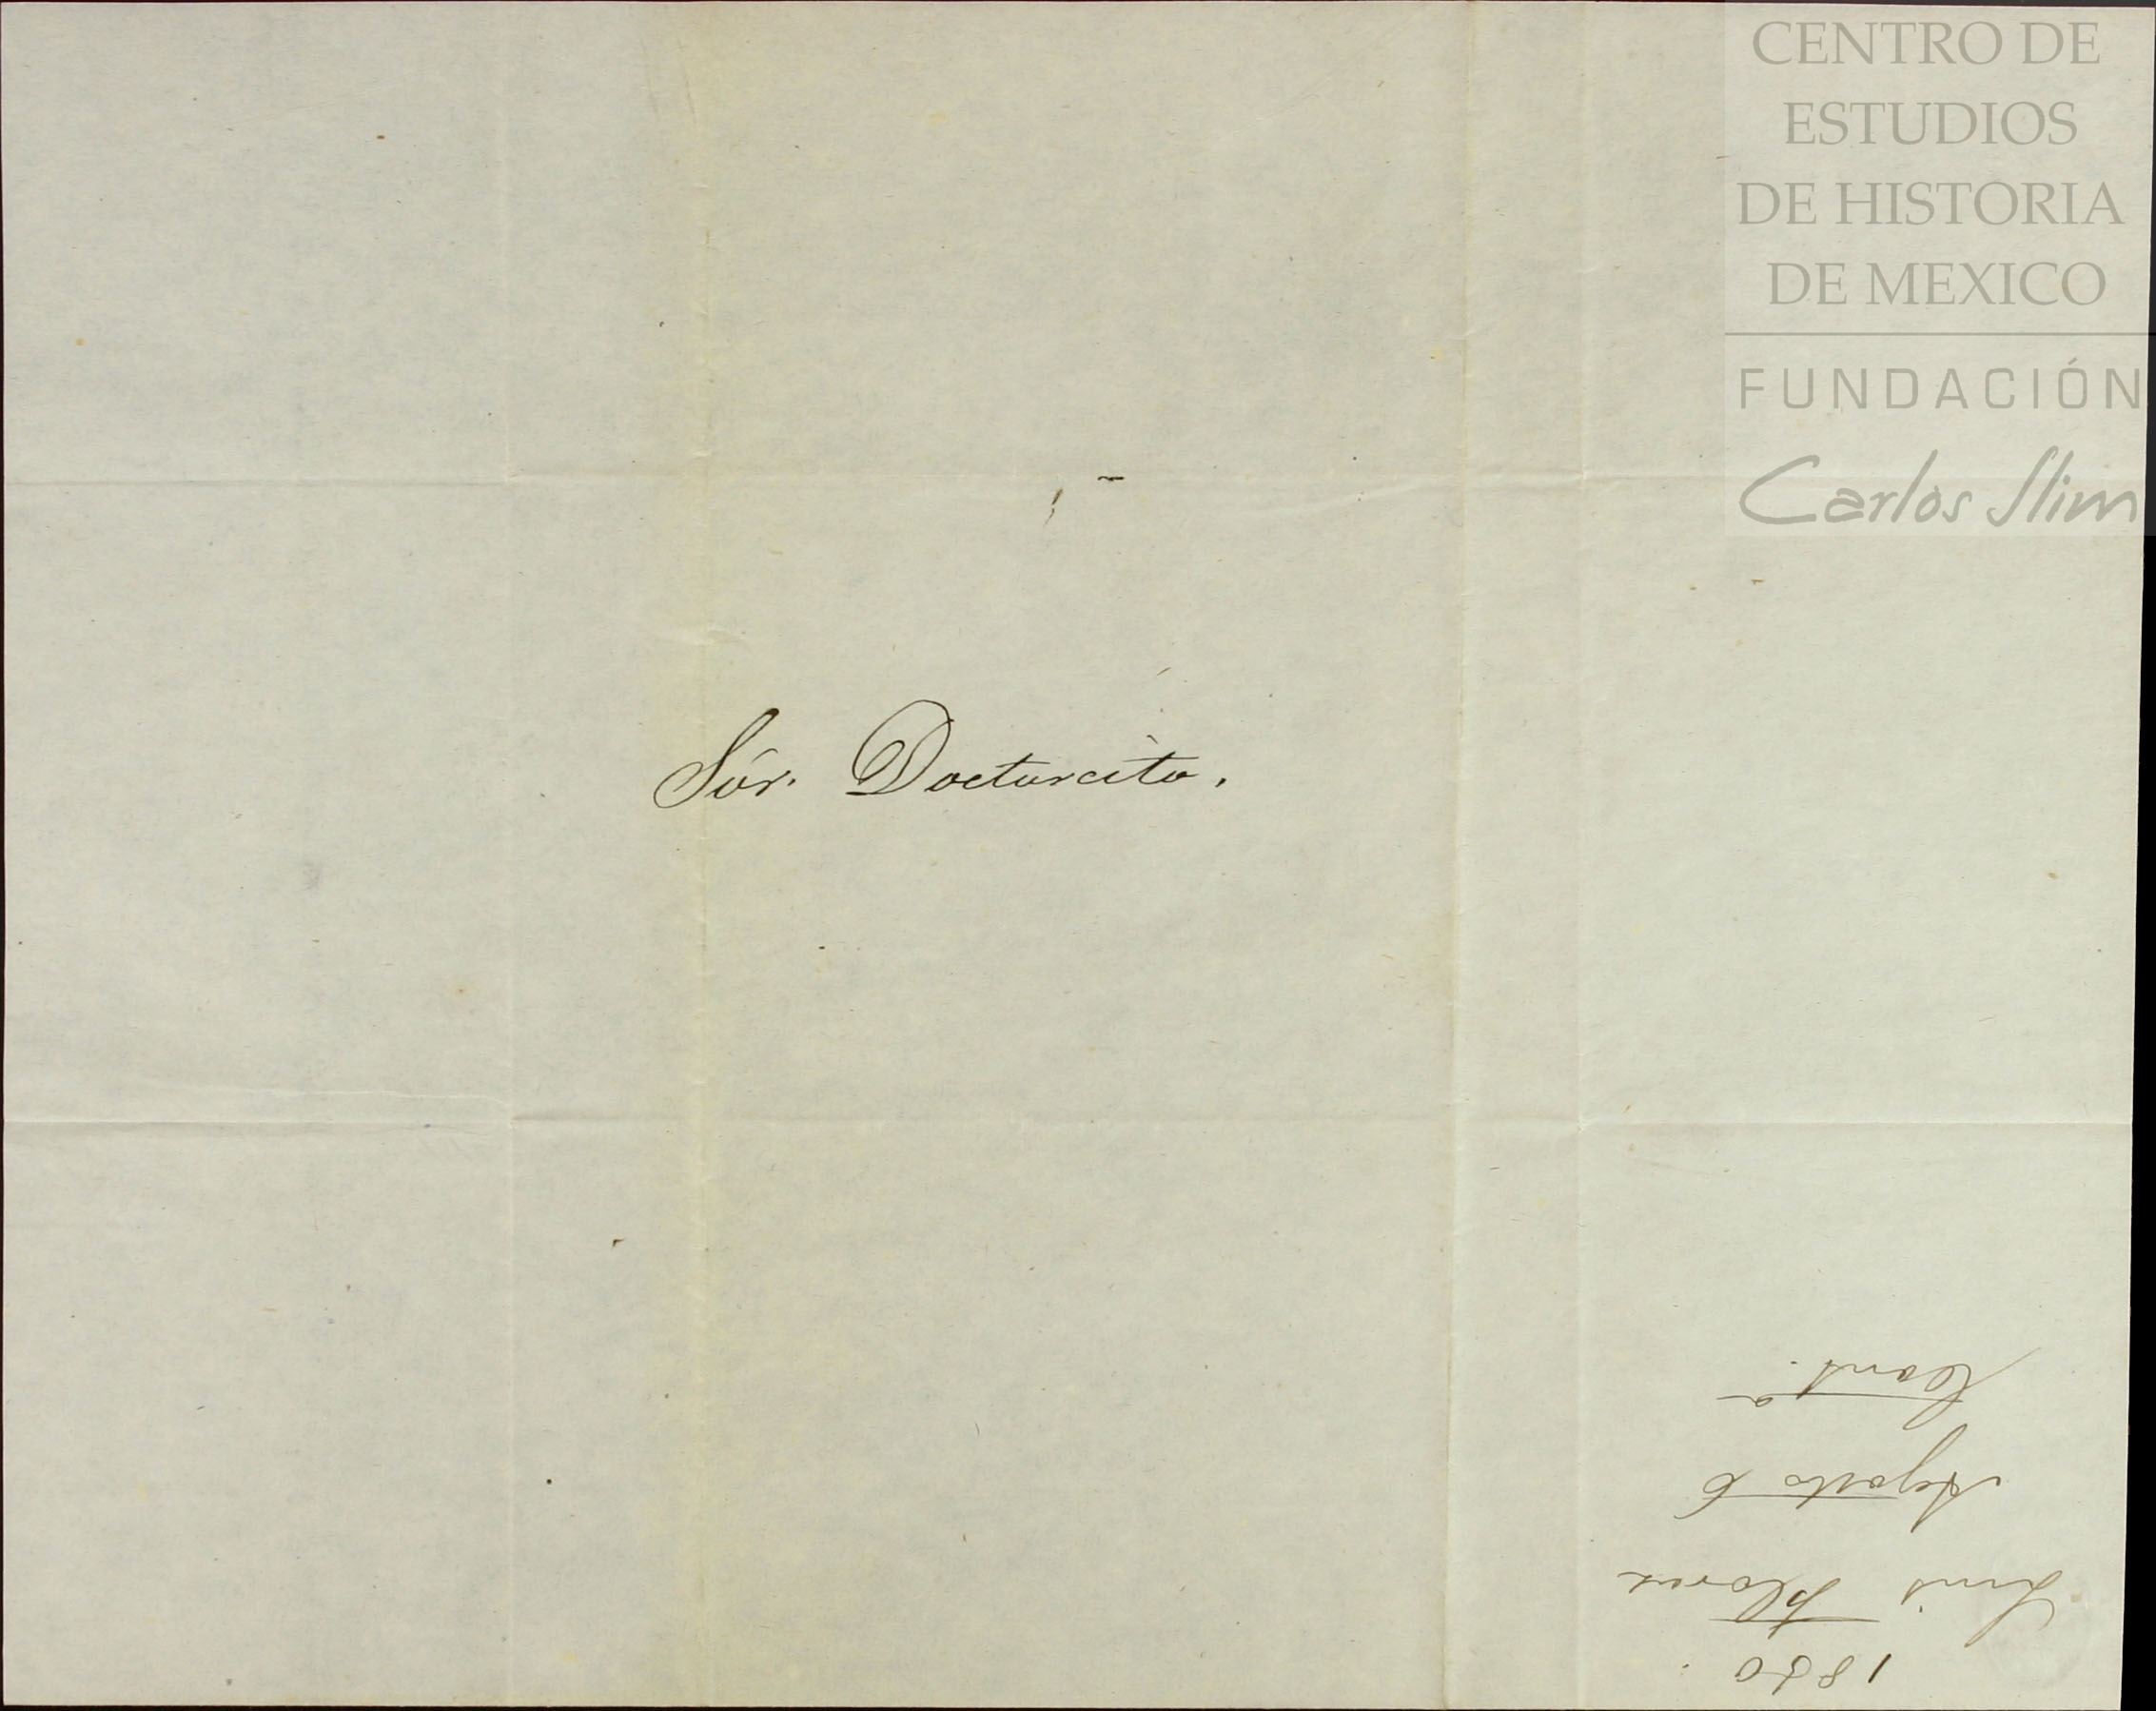 CENTRO DE
ESTUDIOS
DE HISTORIA
DE MEXICO
FUNDACIÓN
Carlos Slim
Sór. Doctorcito.
1850.
Luis Flores
Agosto 6
Cont.